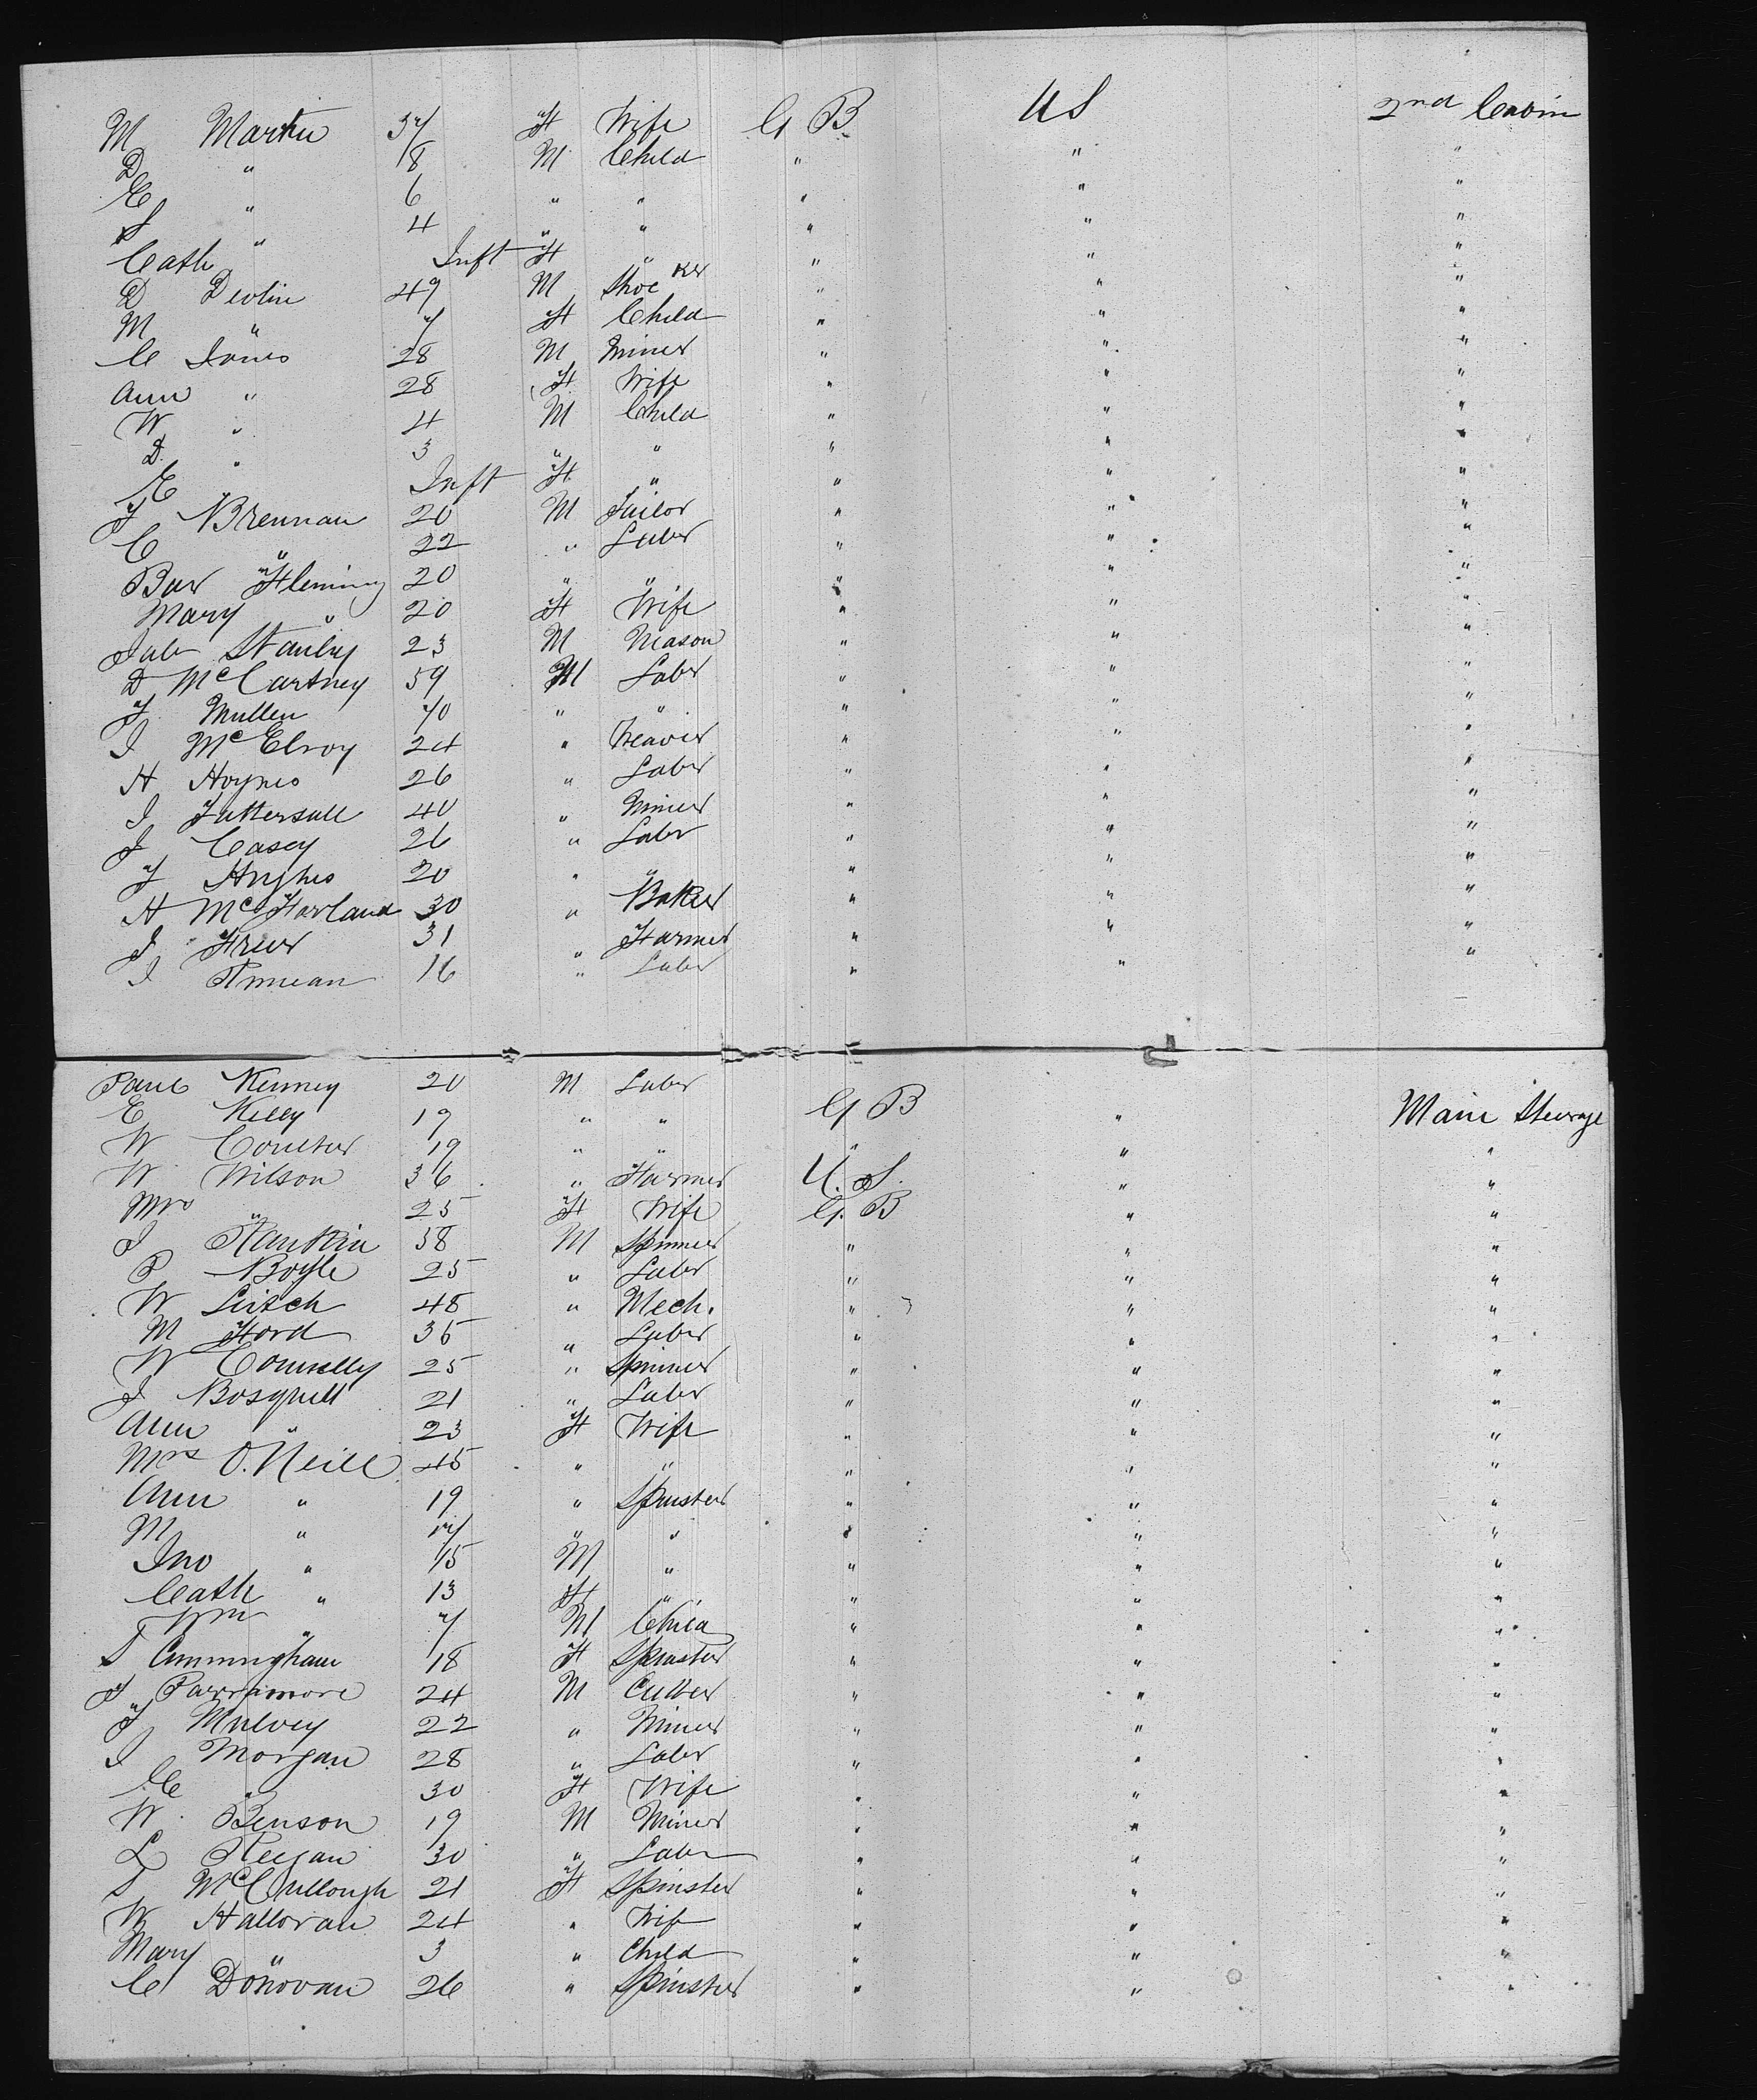 M Martin 37 F Wife G B US 2nd Cabin
D " 8 M Child " " "
E " 6 " " " " "
S " 4 " " " " "
Cath " Inft F " " " "
D Devlin 49 M Shoe ker " " "
M " 7 F Child " " "
C Jones 28 M Miner " " "
Ann " 28 F Wife " " "
W " 4 M Child " " "
D. " 3 " " " " "
E " Inft F " " " "
T Brennan 20 M Tailor " " "
C " 22 " Labr " " "
Bar Fleming 20 " " " " "
Mary " 20 F Wife " " "
Jab Stanley 23 M Mason " " "
D McCartney 59 M Labr " " "
T Mullen 70 " " " " "
J McElroy 24 " Weaver " " "
H Hoynes 26 " Labr " " "
J Tattersall 40 " Miner " " "
J Casey 26 " Labr " " "
T Hughes 20 " " " " "
H McFarland 30 " Baker " " "
J Freer 31 " Farmer " " "
J 16 " Labr " " "
Paul Kenney 20 M Labr
E Kelly 19 " " G B " Main Steerage
W Coulter 19 " " " " "
W Wilson 36 " Farmer U. S. " "
Mrs " 25 F Wife G. B " "
J Rankin 38 M Spinner " " "
P Boyle 25 " Labr " " "
W Leitch 48 " Mech. " " "
M Ford 35 " Labr " " "
W Connelly 25 " Spinner " " "
J Bosquill 21 " Labr " " "
Ann " 23 F Wife " " "
Mrs O.Neill 45 " " " " "
Ann " 19 " Spinster " " "
M " 17 " " " " "
Jno " 15 M " " " "
Cath " 13 F " " " "
Wm " 7 M Child " " "
S Cunningham 18 F Spinster " " "
J Parramore 24 M Cutler " " "
T Mulvey 22 " Miner " " "
J Morgan 28 " Labr " " "
C " 30 F Wife " " "
W Benson 19 M Miner " " "
L Regan 30 " Labr " " "
S McCullough 21 F Spinster " " "
W Halloran 24 " Wife " " "
Mary " 3 " Child " " "
C Donovan 26 " Spinster " " "